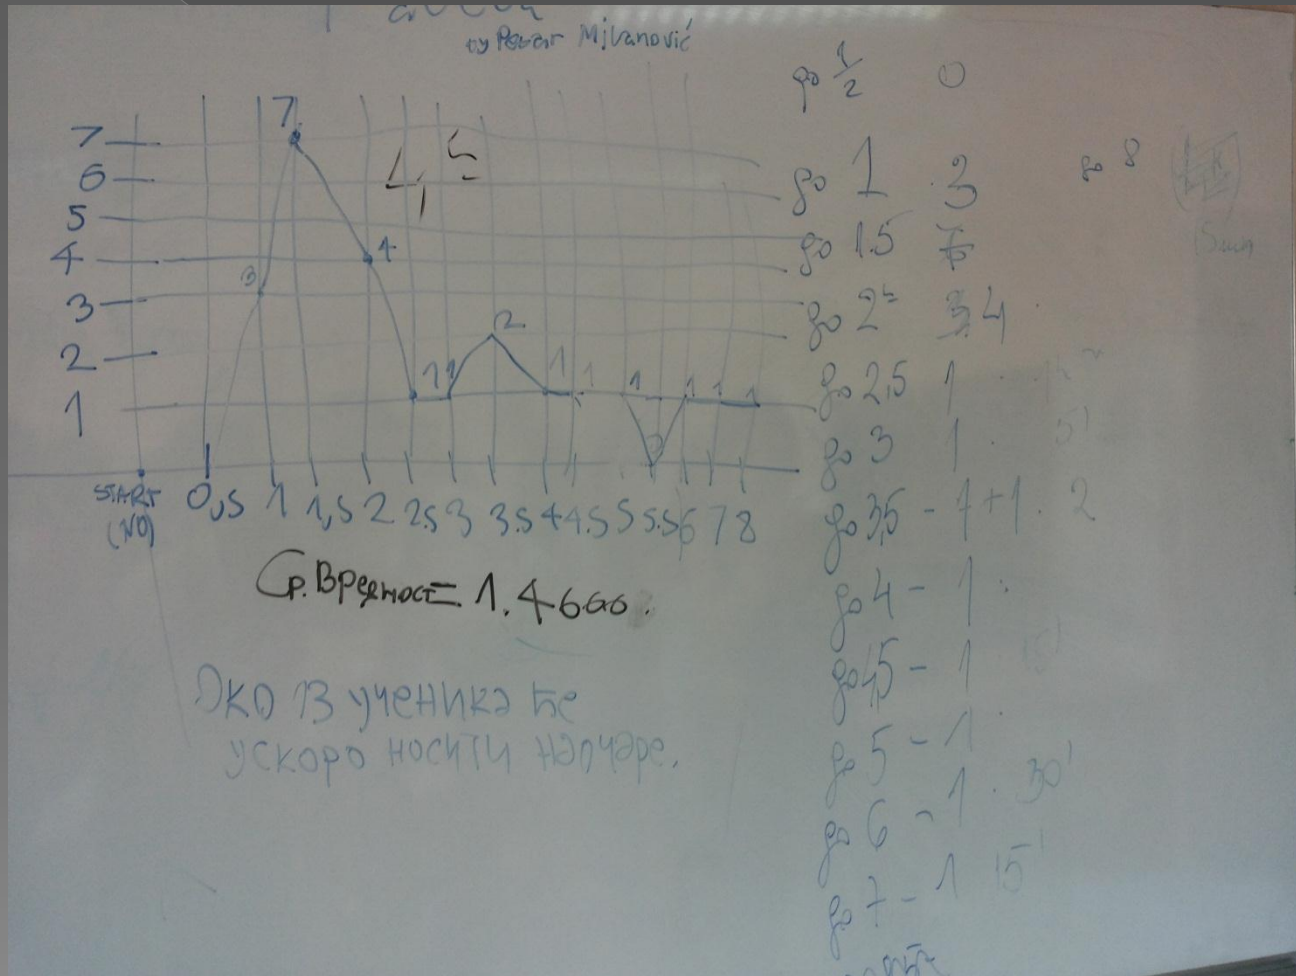 by Petar Mjlvanović
7
7
6
5
4
3
2
1
4,5
3
4
1 1
2
1 1
1
1 1 1
START
(NO)
0,5 1 1,5 2 2.5 3 3.5 4 4.5 5 5.5 6 7 8
Ср. Вредност = 1.4666.
Око 13 ученика ће
ускоро носити наочаре.
до 1/2 0
до 1 3
до 1.5 7
до 2 4
до 2,5 1
до 3 1
до 3,5 - 1+1 2
до 4 - 1
до 4,5 - 1
до 5 - 1
до 6 - 1 30'
до 7 - 1 15'
до 8